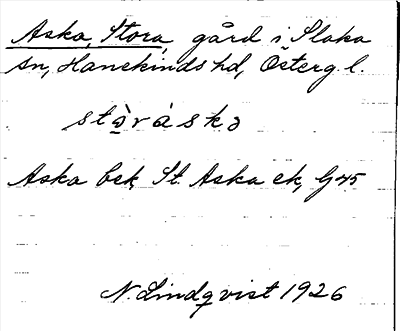 Aska, Stora, gård i Slaka
sn, Hanekinds hd, Österg. l.
stọ̀ráskə
Aska bek, St. Aska ek, G 45
N. Lindqvist 1926